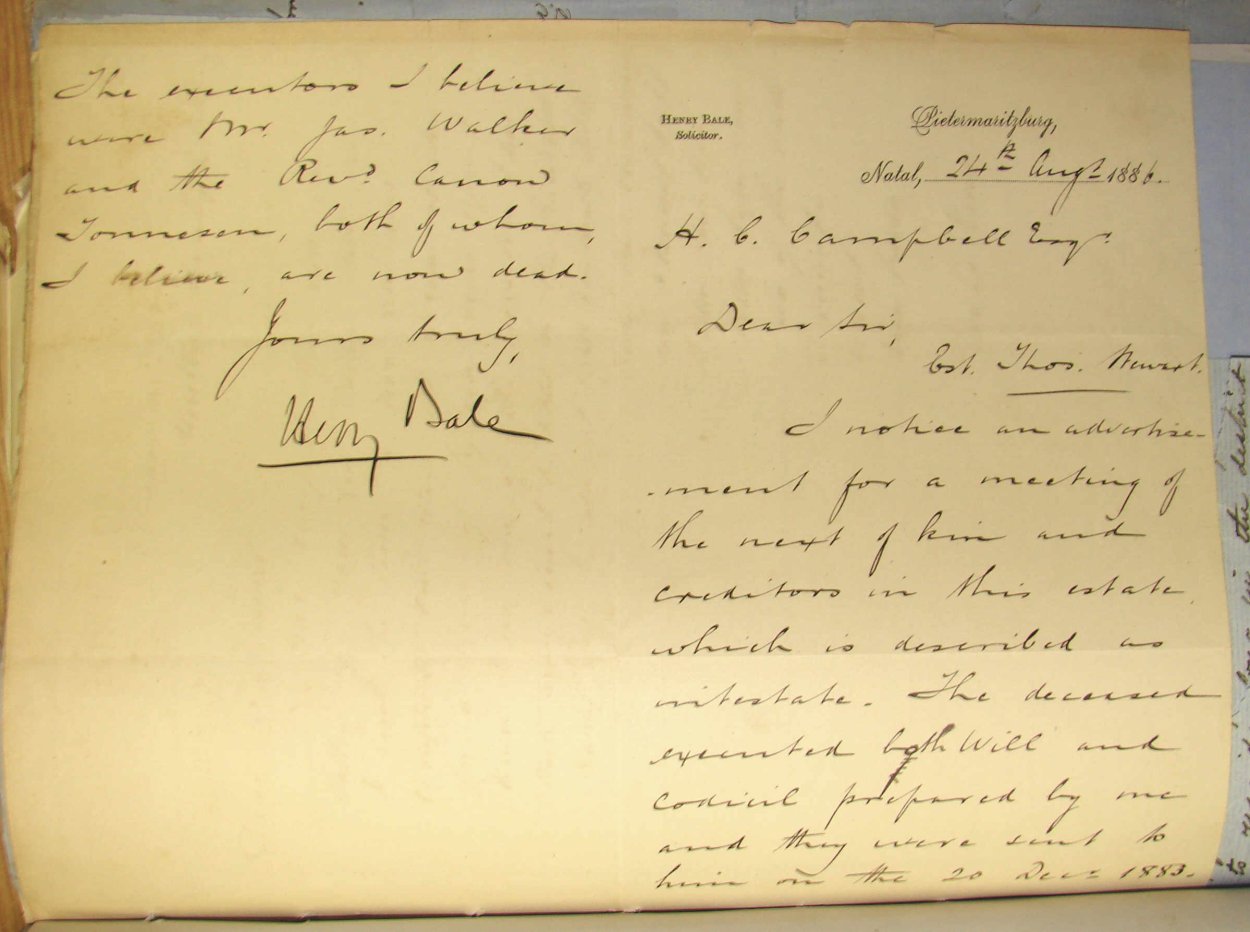 HENRY BALE,
Solicitor.
Pietermaritzburg,
Natal, 24th Augt 1886.
H. C. Campbell Esqr
Dear Sir,
Est. Thos. Stewart.
I notice an advertise-
-ment for a meeting of
the next of kin and
creditors in this estate
which is described as
intestate. The deceased
executed both Will and
codicil prepared by me
and they were sent to
him on the 20 Decr 1883.
The executors I believe
were Mr. Jas. Walker
and the Revd. Canon
Tonnesen, both of whom,
I believe, are now dead.
Yours truly,
Henry Bale